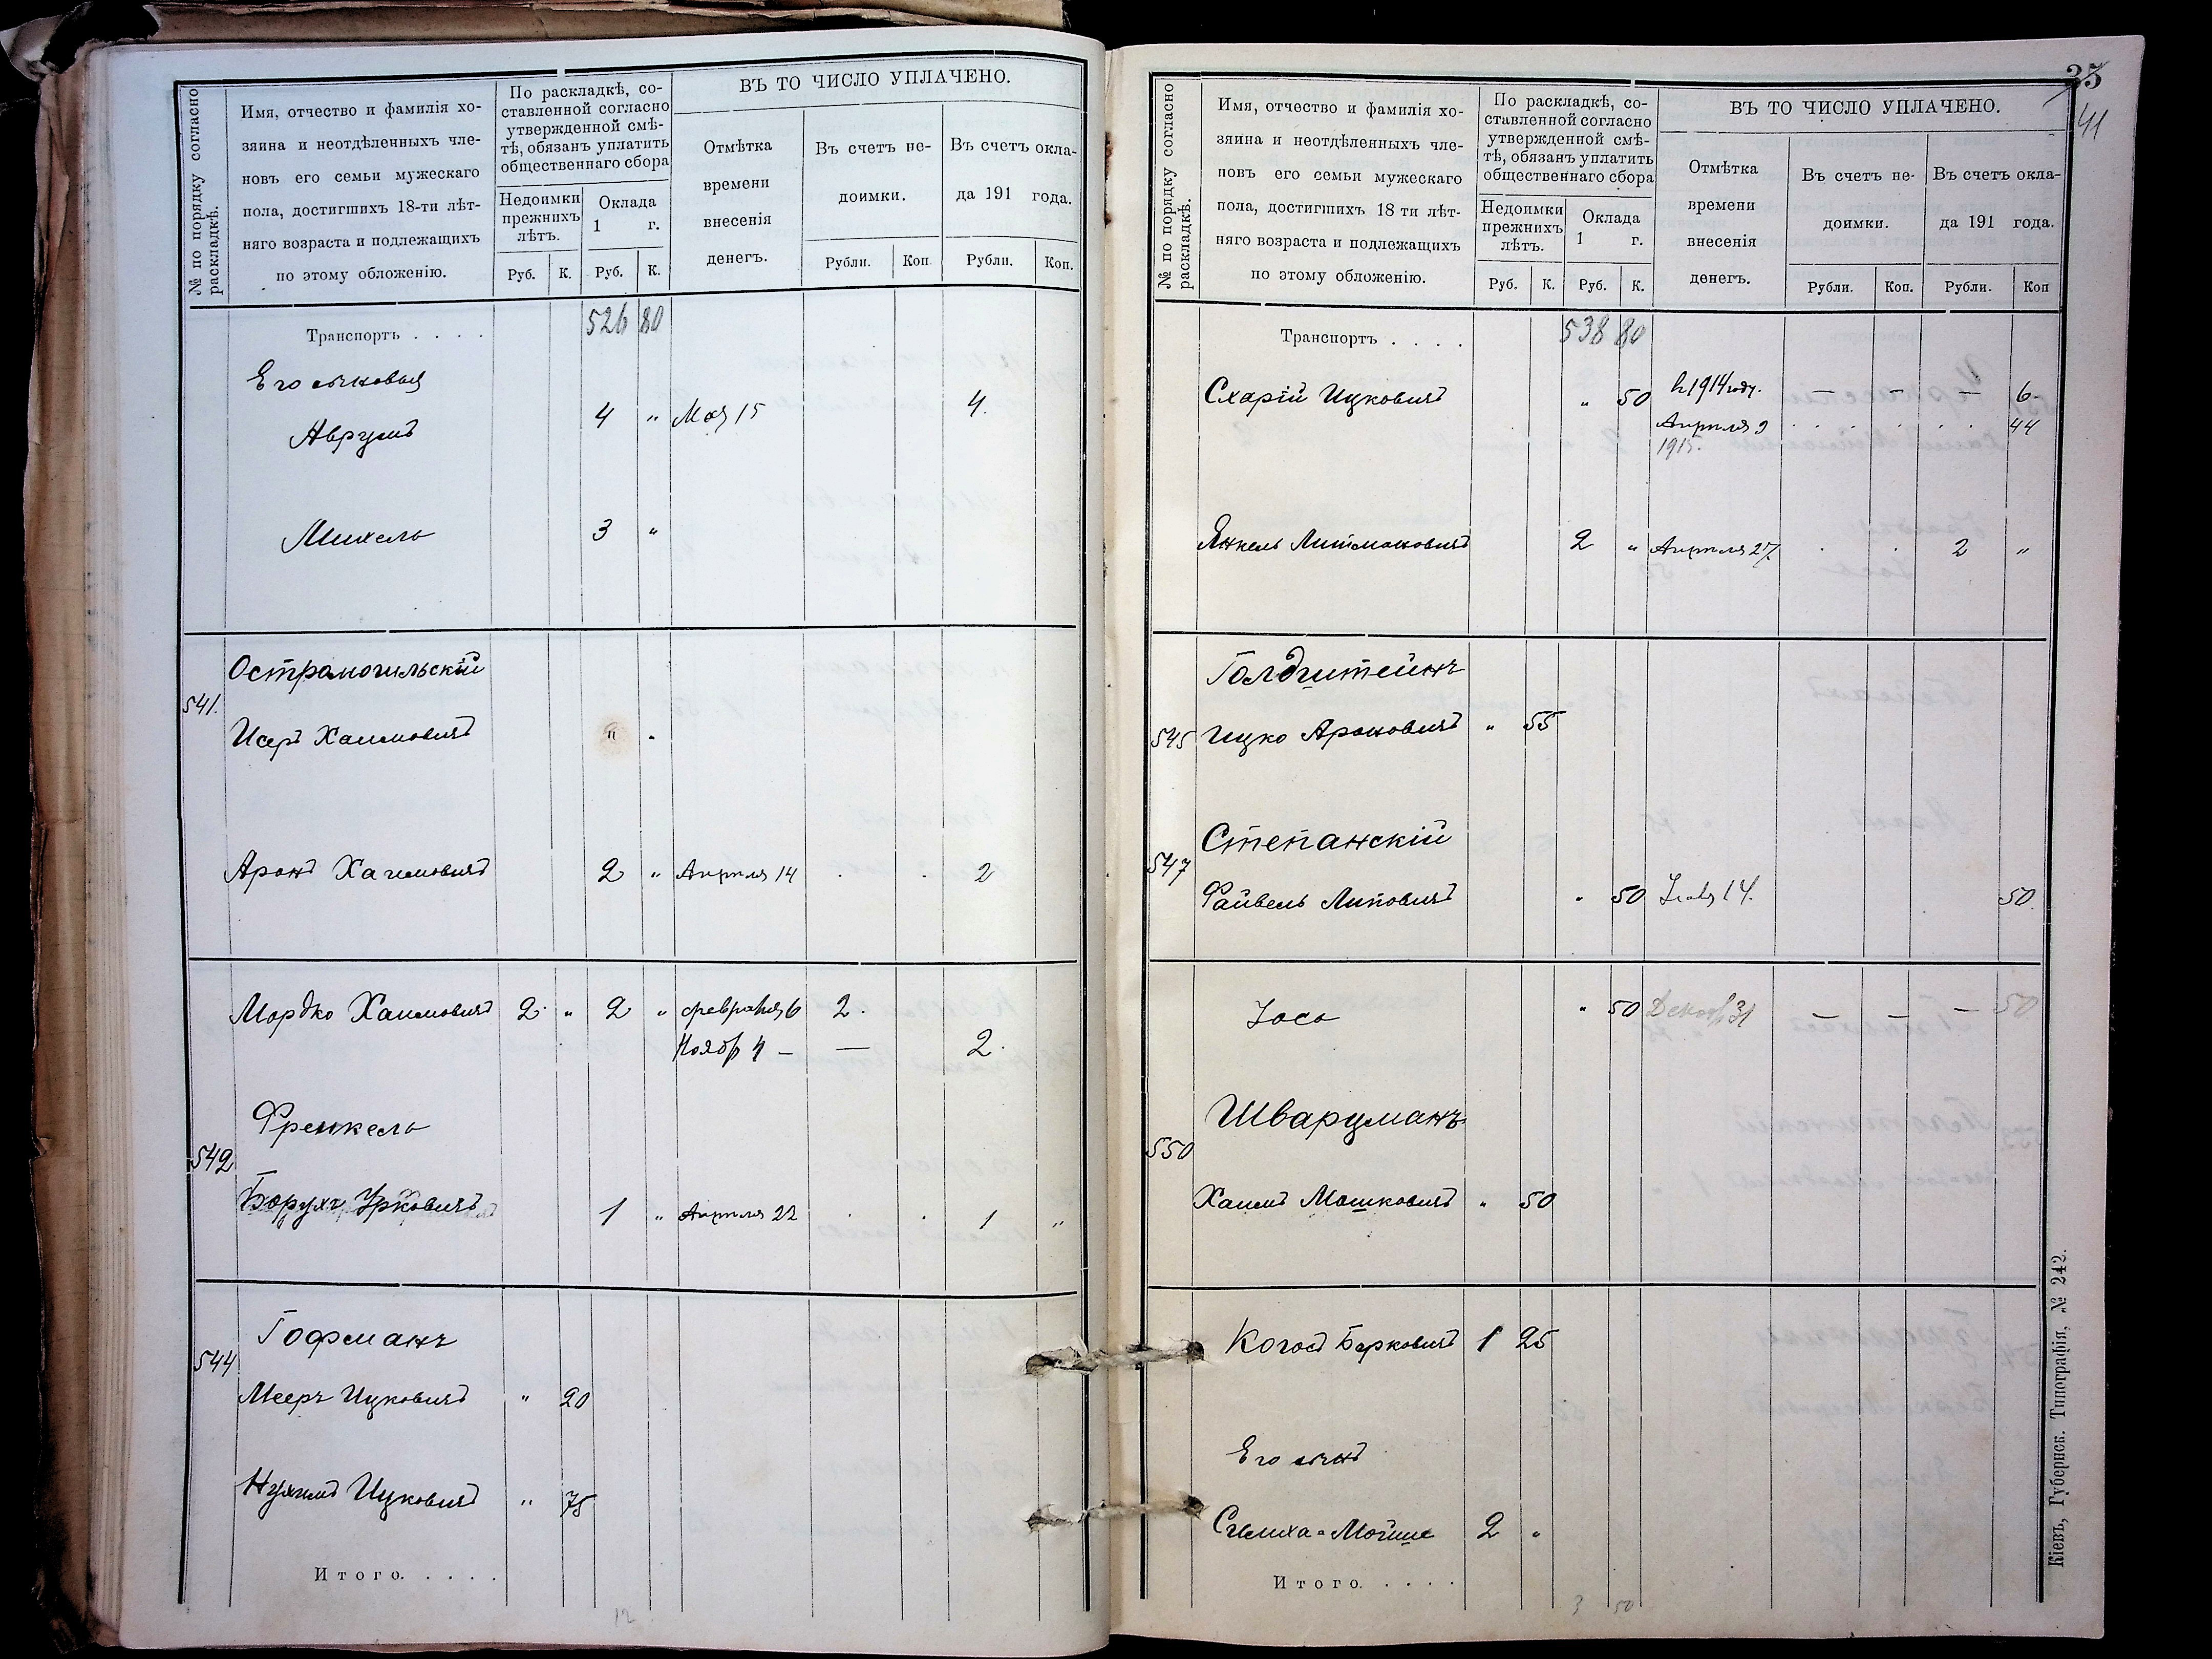 № по порядку согласно раскладкѣ.
Имя, отчество и фамилія хо-
зяина и неотдѣленныхъ чле-
новъ его семьи мужескаго
пола, достигшихъ 18-ти лѣт-
няго возраста и подлежащихъ
по этому обложенію.
По раскладкѣ, со-
ставленной согласно
утвержденной смѣ-
тѣ, обязанъ уплатить
общественнаго сбора
Недоимки
прежнихъ
лѣтъ.
Оклада
1 г.
Руб. К. Руб. К.
ВЪ ТО ЧИСЛО УПЛАЧЕНО.
Отмѣтка
времени
внесенія
денегъ.
Въ счетъ не-
доимки.
Въ счетъ окла-
да 191 года.
Рубли. Коп. Рубли. Коп.
Транспортъ . . . . 526 80
Его сыновья
Аврумъ 4 " Мая 15 4.
Михель 3 "
Острамогильскій
541.
Исеръ Хаимовичъ " "
Аронъ Хаимовичъ 2 " Апрѣля 14 2
Мордко Хаимовичъ 2 " 2 " февраля 6 2.
Ноябр 4 — — 2.
Френкель
542
Борухъ Урковичъ 1 " Апрѣля 22 1 "
Гофманъ
544
Мееръ Ицковичъ " 20
Нухимъ Ицковичъ " 75
Итого. . . . .
12
35
41
№ по порядку согласно раскладкѣ.
Имя, отчество и фамилія хо-
зяина и неотдѣленныхъ чле-
повъ его семьи мужескаго
пола, достигшихъ 18 ти лѣт-
няго возраста и подлежащихъ
по этому обложенію.
По раскладкѣ, со-
ставленной согласно
утвержденной смѣ-
тѣ, обязанъ уплатить
общественнаго сбора
Недоимки
прежнихъ
лѣтъ.
Оклада
1 г.
Руб. К. Руб. К.
ВЪ ТО ЧИСЛО УПЛАЧЕНО.
Отмѣтка
времени
внесенія
денегъ.
Въ счетъ не-
доимки.
Въ счетъ окла-
да 191 года.
Рубли. Коп. Рубли. Коп
Транспортъ . . . . 538 80
Схарій Ицковичъ " 50 в 1914 году. — — — 6-
Апрѣля 9 44
1915.
Янкель Литмановичъ 2 " Апрѣля 27 2 "
Голдштейнъ
545 Ицко Ароновичъ " 55
Степанскій
547
Файвель Липовичъ " 50 Іюля 14. 50.
Іосъ " 50 Декабр 31 — — — 50
Шварцманъ
550
Хаимъ Мошковичъ " 50
Когосъ Берковичъ 1 25
Его сынъ
Симха-Мойше 2 "
Итого. . . . .
3 50
Кіевъ, Губернск. Типографія, № 242.